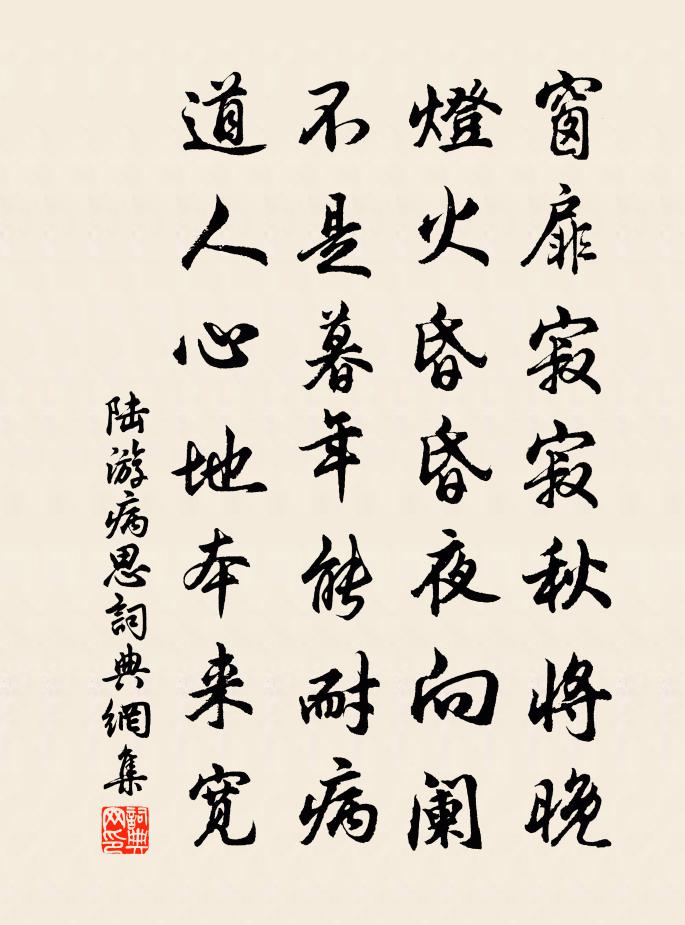 窗扉寂寂秋將晚
燈火昏昏夜向阑
不是暮年能耐病
道人心地本来寛
陆游病思詞典網集
詞典网印